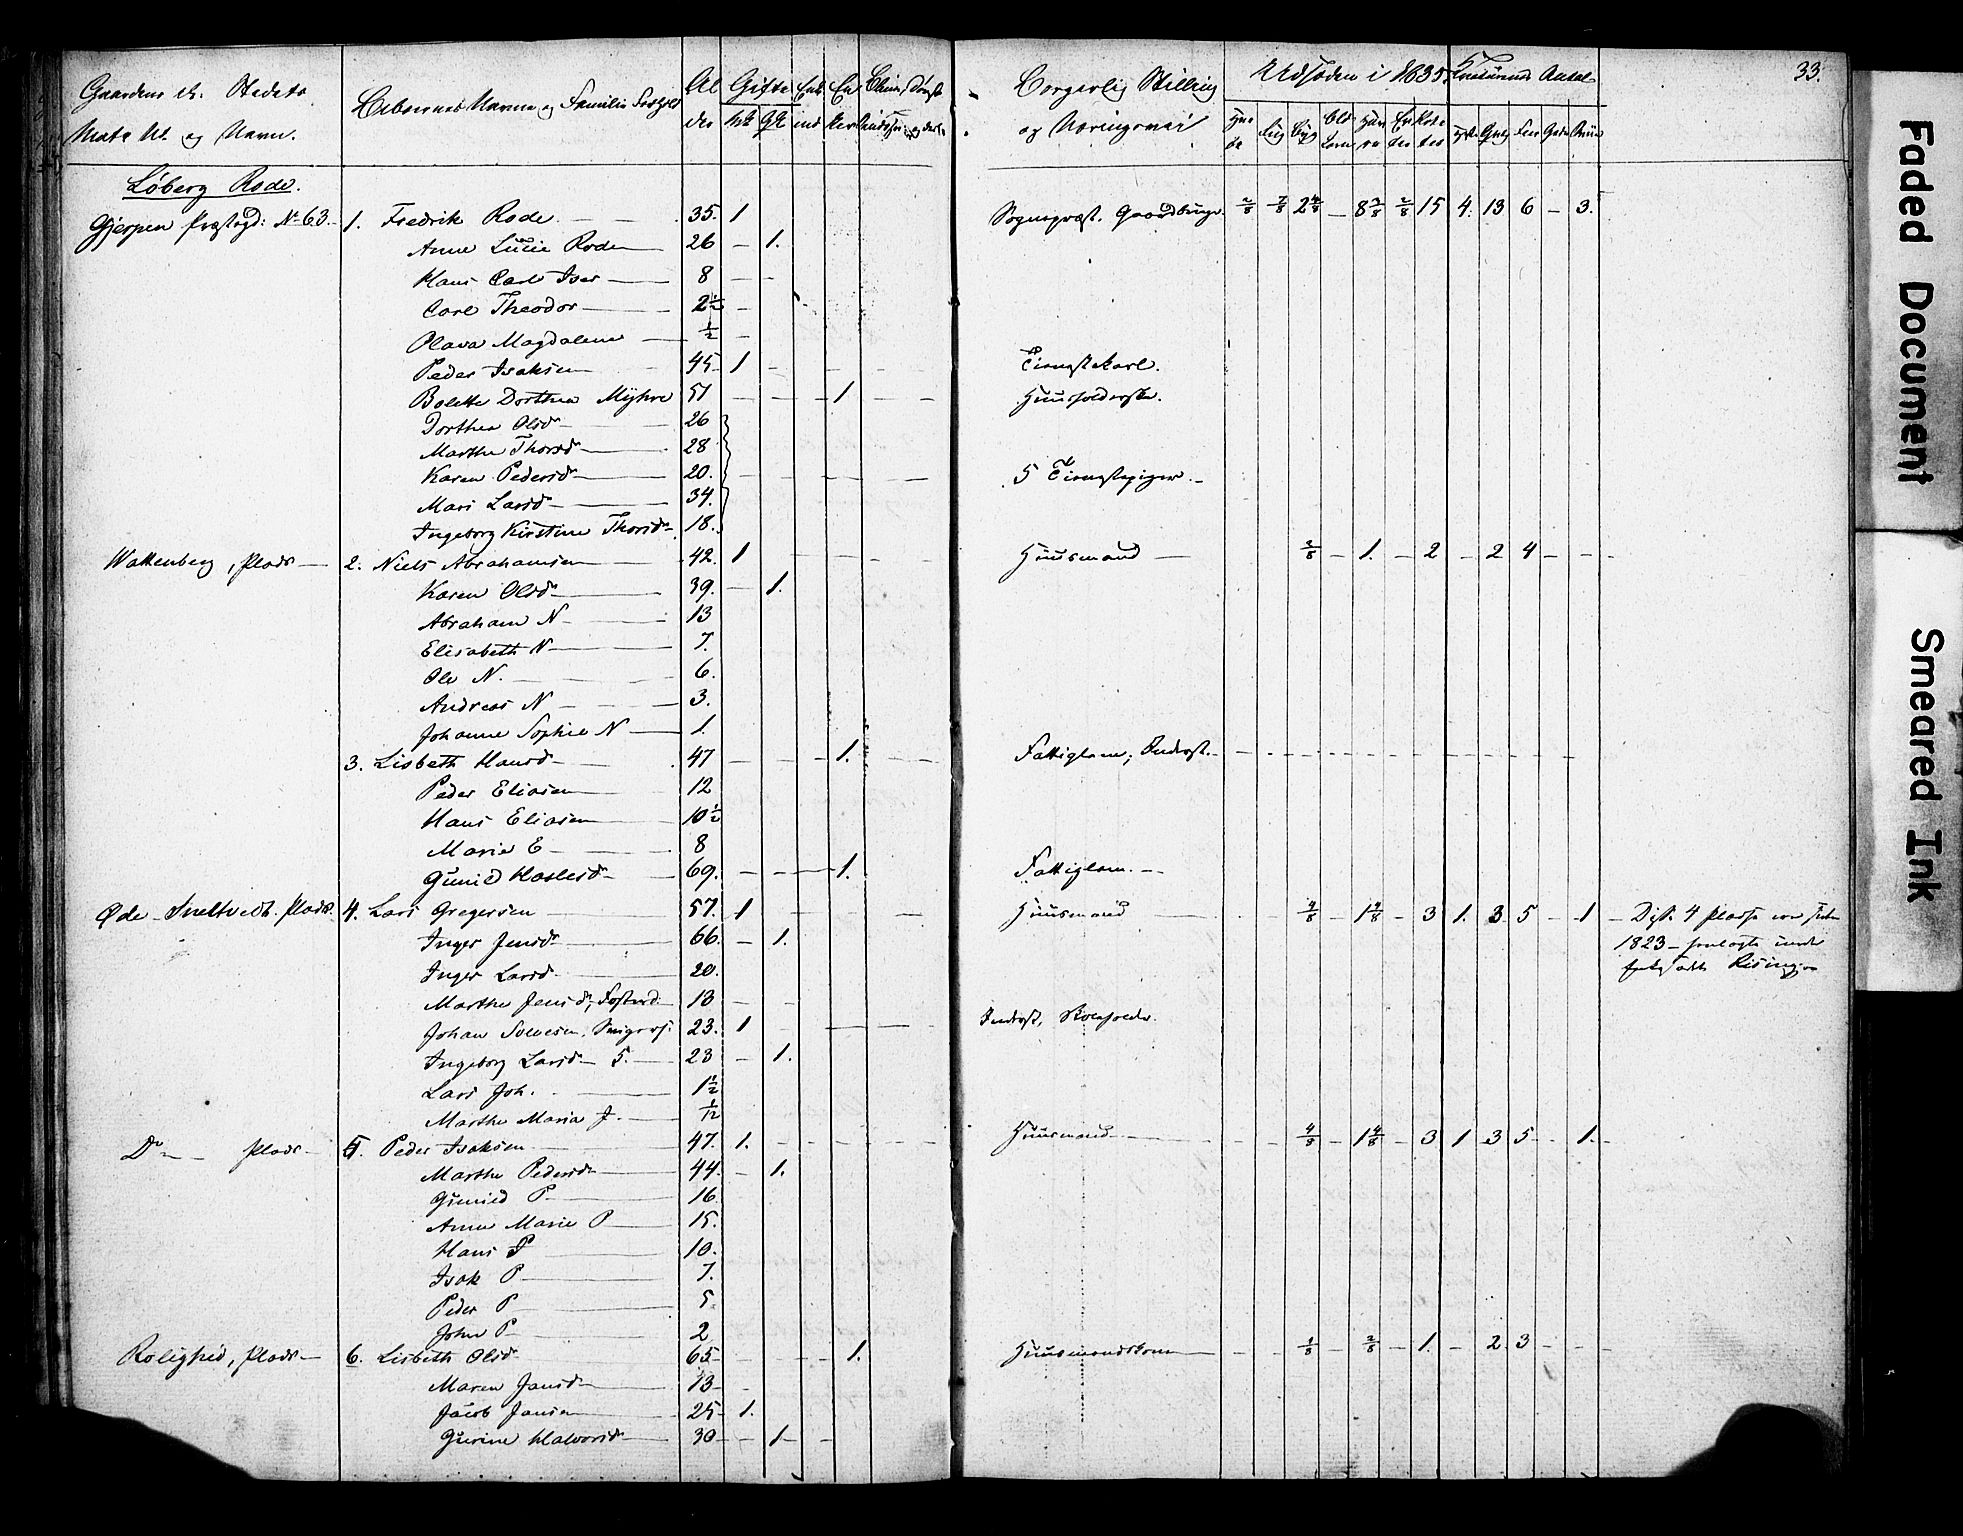 33.
Gaardens el. Stedets Matr. Nl. og Navn.
Beboernes Navne og Familie
Alder
Gifte
Mk Qk
Enkemd
Enker
Borgerlig Stilling og Næringsvei
Udsæden i 1835.
Hvede Rug Byg Havre Erter
Kreaturenes Antal
Heste Faar Sviin
Løberg Rode.
Gjerpen Præstegd: No 63. 1. Fredrik Rode 35. 1 Sognepræst. Gaardbruger 2/8 7/8 2 4/8 — 8 3/8 2/8 15 4. 13 6 — 3.
Anne Lucie Rode 26 — 1.
Hans Carl Iver 8
Carl Theodor 2 1/2
Olava Magdalena 1/2
Peder Isaksen 45 1 Tienestekarl.
Bolette Dorthea Myhre 51 1 Huusholderske.
Dorthea Olsd 26
Marthe Thorsd 28
Karen Pedersd 20. 5 Tienestepiger.
Mari Larsd 34.
Ingeborg Kirstine Thorsd 18.
Wattenberg, Plads 2. Niels Abrahamsen 42. 1 Huusmand 3/8 — 1. — 2 — 2 4 — —
Karen Olsd 39. 1.
Abraham N 13
Elisabeth N 7.
Ole N. 6.
Andreas N 3.
Johanne Sophie N 1.
3. Lisbeth Hansd 47 1. Fattiglem, Inderst.
Peder Eliasen 12
Hans Eliasen 10 1/2
Marie E 8
Gunild 69. 1. Fattiglem.
Øde-Sneltvedt. Plads. 4. Lars Gregersen 57. 1 Huusmand 4/8 — 1 4/8 — 3 1. 3 5 — 1 — Diss. 4 Pladse ere siden
1823 — under
Rising
Inger Jensd 66. — 1.
Inger Larsd 20.
Marthe Jensd, Fosterd. 13
Johan Solvesen, 23. 1 Inderst,
Ingeborg Larsd S. 23 — 1.
Lars Joh. 1 1/2
Marthe Maria J. 1/12
Do — Plads 5. Peder Isaksen 47. 1. Huusmand 4/8 — 1 4/8 — 3 1 3 5 — 1.
Marthe Pedersd 44. — 1.
Gunild P 16
Anne Marie P 15.
Hans P 10.
Isak P 7.
Peder P 5
John P 2
Rolighed, Plads 6. Lisbeth Olsd 65 1. Huusmandskone 1/8 — 2/8 — 1. — 2 3
Maren Jansd 13
Jacob Jansen 25 1.
Gurine Halvorsd 30 1
Faded Document
Smeared Ink